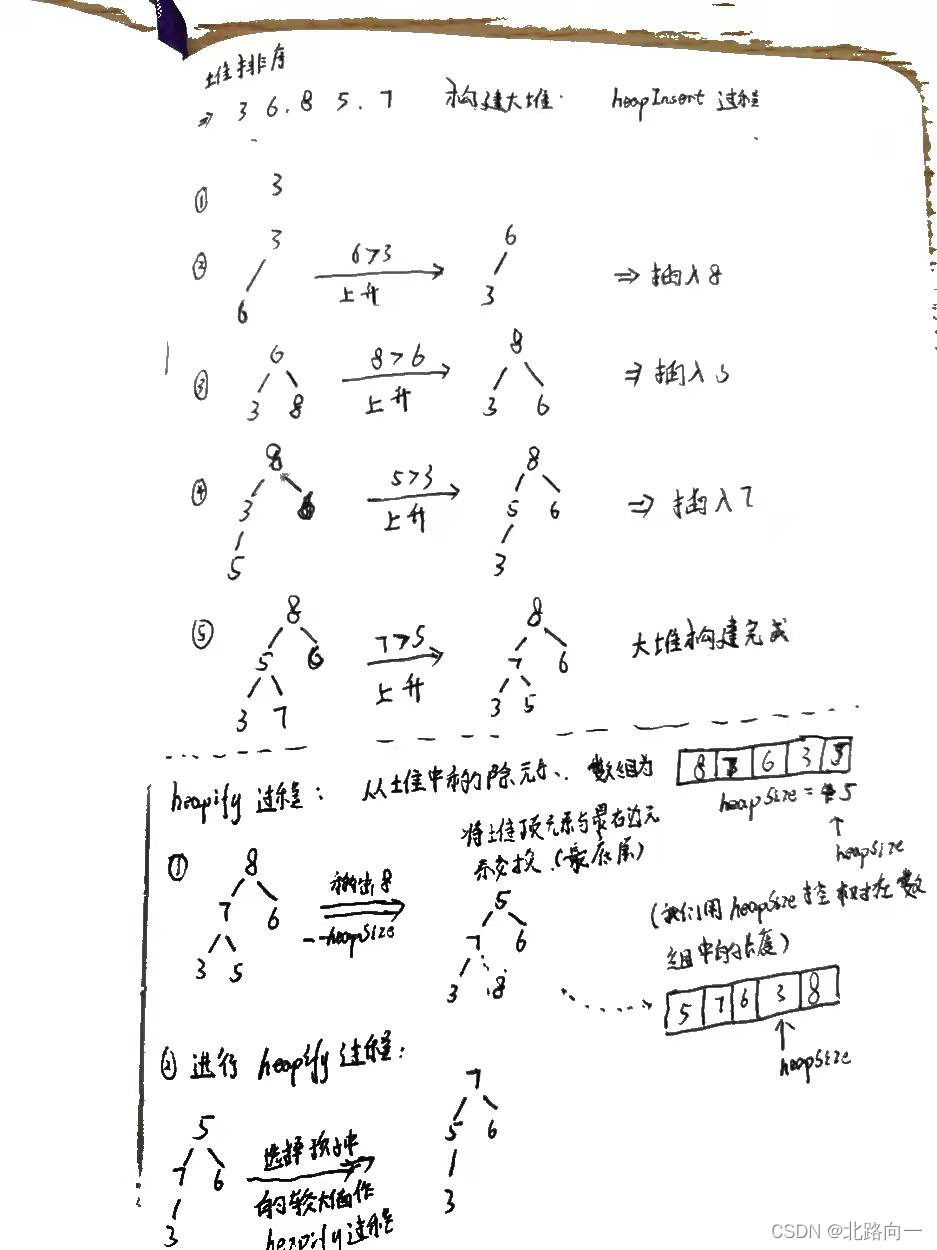 堆排序
⇒ 3 6. 8 5. 7 构建大堆. heapInsert 过程
① 3
② 3 6 6>3 上升 6 3 ⇒ 插入8
③ 6 3 8 8>6 上升 8 3 6 ⇒ 插入5
④ 8 3 5 5>3 上升 8 5 6 3 ⇒ 插入7
⑤ 8 5 6 3 7 7>5 上升 8 7 6 3 5 大堆构建完成
heapify 过程: 从堆中移除元素、数组为 8 7 6 3 5
heapSize = 5
heapSize
① 8 7 6 3 5 移出8 --heapSize
将堆顶元素与最右边元
素交换.(最底层)
5 7 6 3 8
(我们用heapSize控制堆在数
组中的长度)
5 7 6 3 8
heapSize
② 进行 heapify 过程:
5 7 6 3
选择孩子中
的较大值作
heapify过程
7 5 6 3
CSDN @北路向一